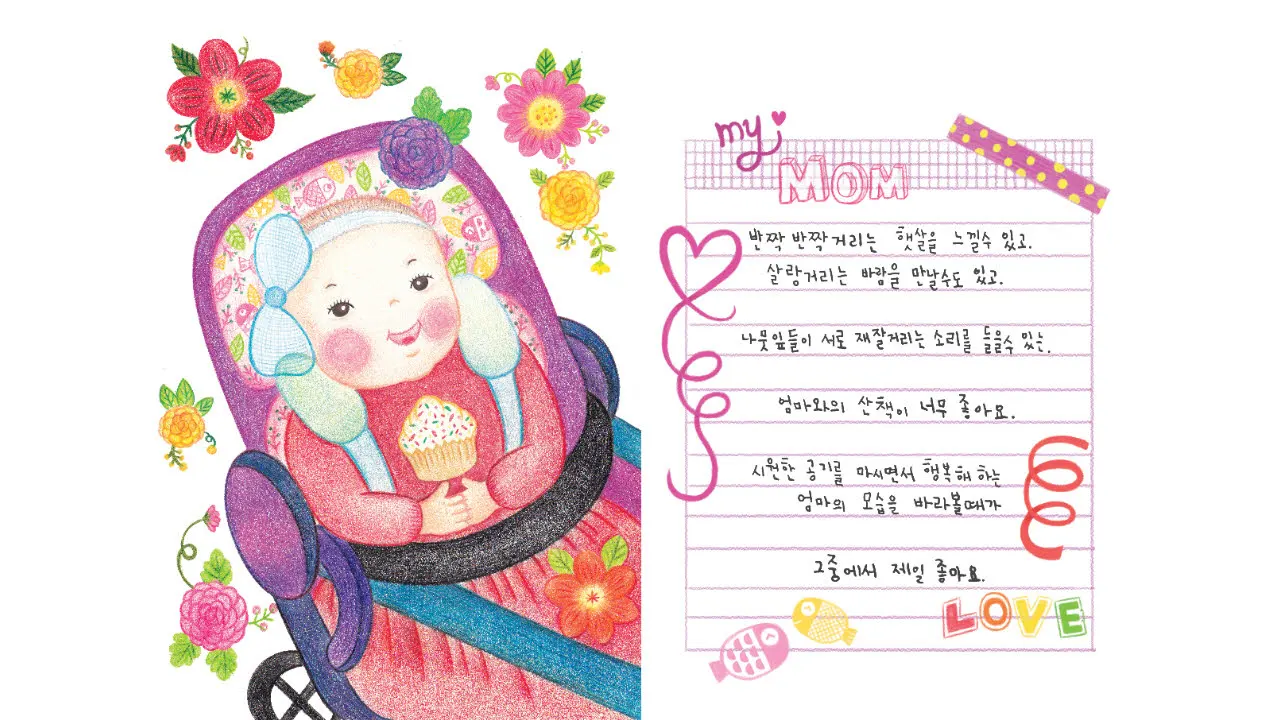 my
MOM
반짝 반짝거리는 햇살을 느낄수 있고.
살랑거리는 바람을 만날수도 있고.
나뭇잎들이 서로 재잘거리는 소리를 들을수 있는.
엄마와의 산책이 너무 좋아요.
시원한 공기를 마시면서 행복해 하는
엄마의 모습을 바라볼때가
그중에서 제일 좋아요.
LOVE